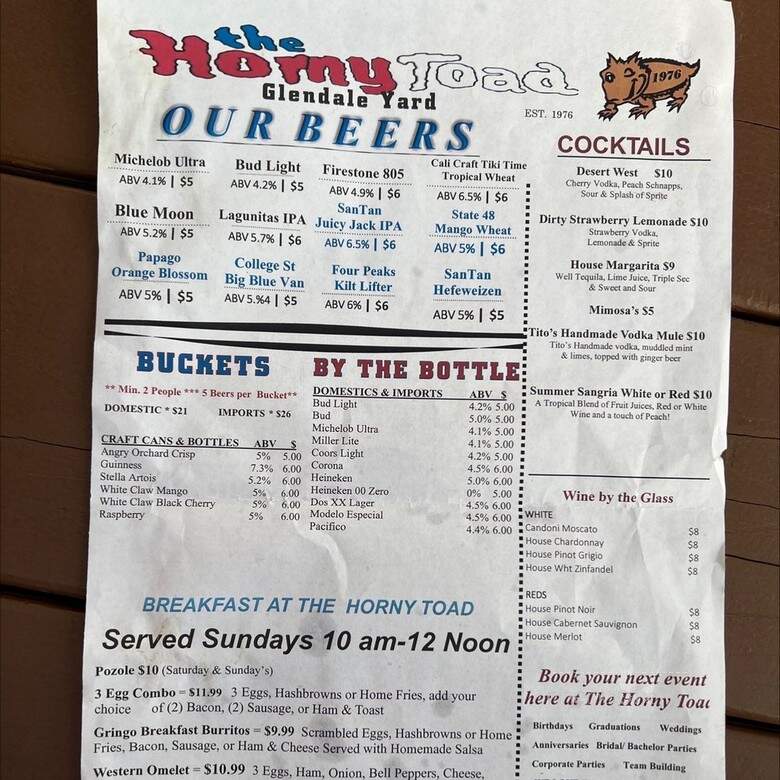 the
Horny Toad
Glendale Yard
1976
EST. 1976
OUR BEERS
Michelob Ultra
ABV 4.1% | $5
Bud Light
ABV 4.2% | $5
Firestone 805
ABV 4.9% | $6
Cali Craft Tiki Time
Tropical Wheat
ABV 6.5% | $6
Blue Moon
ABV 5.2% | $5
Lagunitas IPA
ABV 5.7% | $6
SanTan
Juicy Jack IPA
ABV 6.5% | $6
State 48
Mango Wheat
ABV 5% | $6
Papago
Orange Blossom
ABV 5% | $5
College St
Big Blue Van
ABV 5.%4 | $5
Four Peaks
Kilt Lifter
ABV 6% | $6
SanTan
Hefeweizen
ABV 5% | $5
BUCKETS
** Min. 2 People *** 5 Beers per Bucket**
DOMESTIC * $21 IMPORTS * $26
CRAFT CANS & BOTTLES ABV $
Angry Orchard Crisp 5% 5.00
Guinness 7.3% 6.00
Stella Artois 5.2% 6.00
White Claw Mango 5% 6.00
White Claw Black Cherry 5% 6.00
Raspberry 5% 6.00
BY THE BOTTLE
DOMESTICS & IMPORTS ABV $
Bud Light 4.2% 5.00
Bud 5.0% 5.00
Michelob Ultra 4.1% 5.00
Miller Lite 4.1% 5.00
Coors Light 4.2% 5.00
Corona 4.5% 6.00
Heineken 5.0% 6.00
Heineken 00 Zero 0% 5.00
Dos XX Lager 4.5% 6.00
Modelo Especial 4.5% 6.00
Pacifico 4.4% 6.00
BREAKFAST AT THE HORNY TOAD
Served Sundays 10 am-12 Noon
Pozole $10 (Saturday & Sunday's)
3 Egg Combo = $11.99 3 Eggs, Hashbrowns or Home Fries, add your
choice of (2) Bacon, (2) Sausage, or Ham & Toast
Gringo Breakfast Burritos = $9.99 Scrambled Eggs, Hashbrowns or Home
Fries, Bacon, Sausage, or Ham & Cheese Served with Homemade Salsa
Western Omelet = $10.99 3 Eggs, Ham, Onion, Bell Peppers, Cheese,
COCKTAILS
Desert West $10
Cherry Vodka, Peach Schnapps,
Sour & Splash of Sprite
Dirty Strawberry Lemonade $10
Strawberry Vodka,
Lemonade & Sprite
House Margarita $9
Well Tequila, Lime Juice, Triple Sec
& Sweet and Sour
Mimosa's $5
Tito's Handmade Vodka Mule $10
Tito's Handmade vodka, muddled mint
& limes, topped with ginger beer
Summer Sangria White or Red $10
A Tropical Blend of Fruit Juices, Red or White
Wine and a touch of Peach!
Wine by the Glass
WHITE
Candoni Moscato $8
House Chardonnay $8
House Pinot Grigio $8
House Wht Zinfandel $8
REDS
House Pinot Noir $8
House Cabernet Sauvignon $8
House Merlot $8
Book your next event
here at The Horny Toad
Birthdays Graduations Weddings
Anniversaries Bridal/ Bachelor Parties
Corporate Parties Team Building